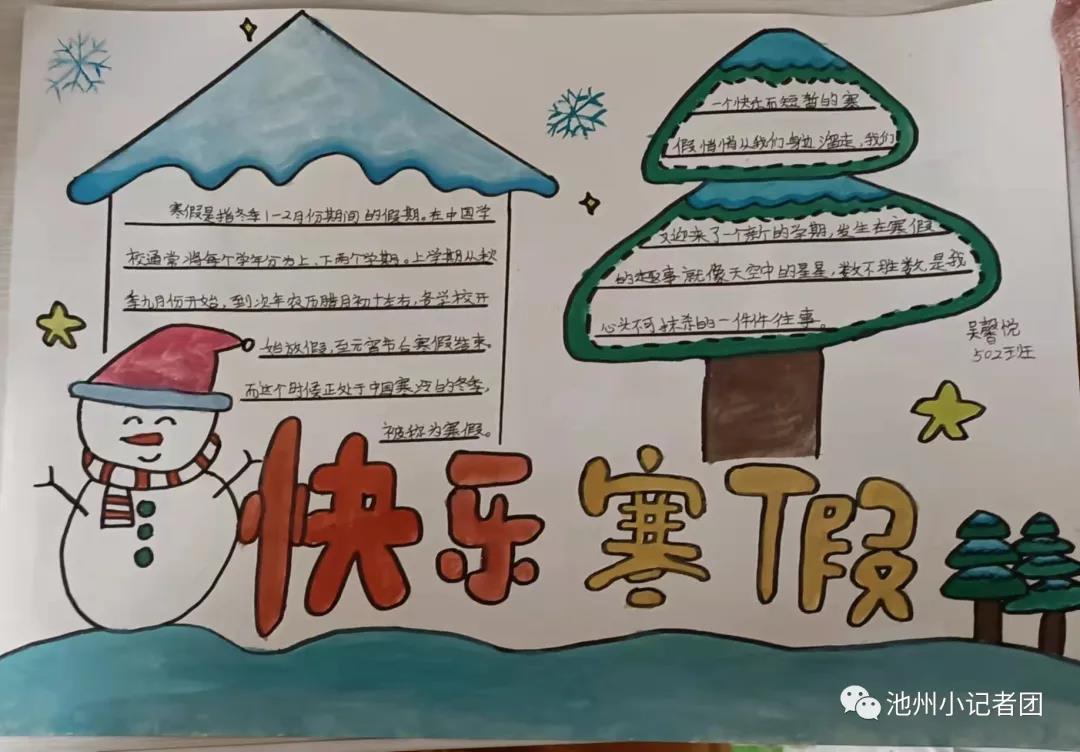 寒假是指冬季1-2月份期间的假期。在中国学
校通常将每个学年分为上、下两个学期。上学期从秋
季九月份开始,到次年农历腊月初十左右,各学校开
始放假,至元宵节后寒假结束。
而这个时候正处于中国寒冷的冬季,
被称为寒假。
一个快乐而短暂的寒
假悄悄从我们身边溜走,我们
又迎来了一个新的学期,发生在寒假
的趣事就像天空中的星星,数不胜数,是我
心头不可抹杀的一件件往事。
吴馨悦
502班
快乐寒假
池州小记者团